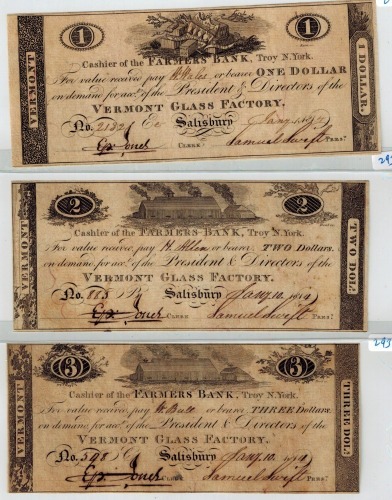 1 1
VERMONT
1 DOLLAR.
Cashier of the FARMERS BANK, Troy N.York.
For value received pay H. Hales or bearer ONE DOLLAR
on demand for acc.t of the President & Directors of the
VERMONT GLASS FACTORY,
No. 2132 Salisbury Jany.
Clerk Samuel Swift Prest.
2 2
VERMONT
TWO DOL.
Cashier of the FARMERS BANK, Troy N.York.
For value receive, pay H. Allen or bearer TWO Dollars.
on demand, for acc.t of the President & Directors of the
VERMONT GLASS FACTORY.
No. 883 Salisbury Jany. 10. 1814
Clerk Samuel Swift Prest.
293
3 3
VERMONT
THREE DOL.
Cashier of the FARMERS BANK, Troy N.York.
For value received, pay H. Ball or bearer, THREE Dollars.
on demand, for acc.t of the President & Directors of the
VERMONT GLASS FACTORY.
No. 598 Salisbury Jany. 10. 1814
Clerk Samuel Swift Prest.